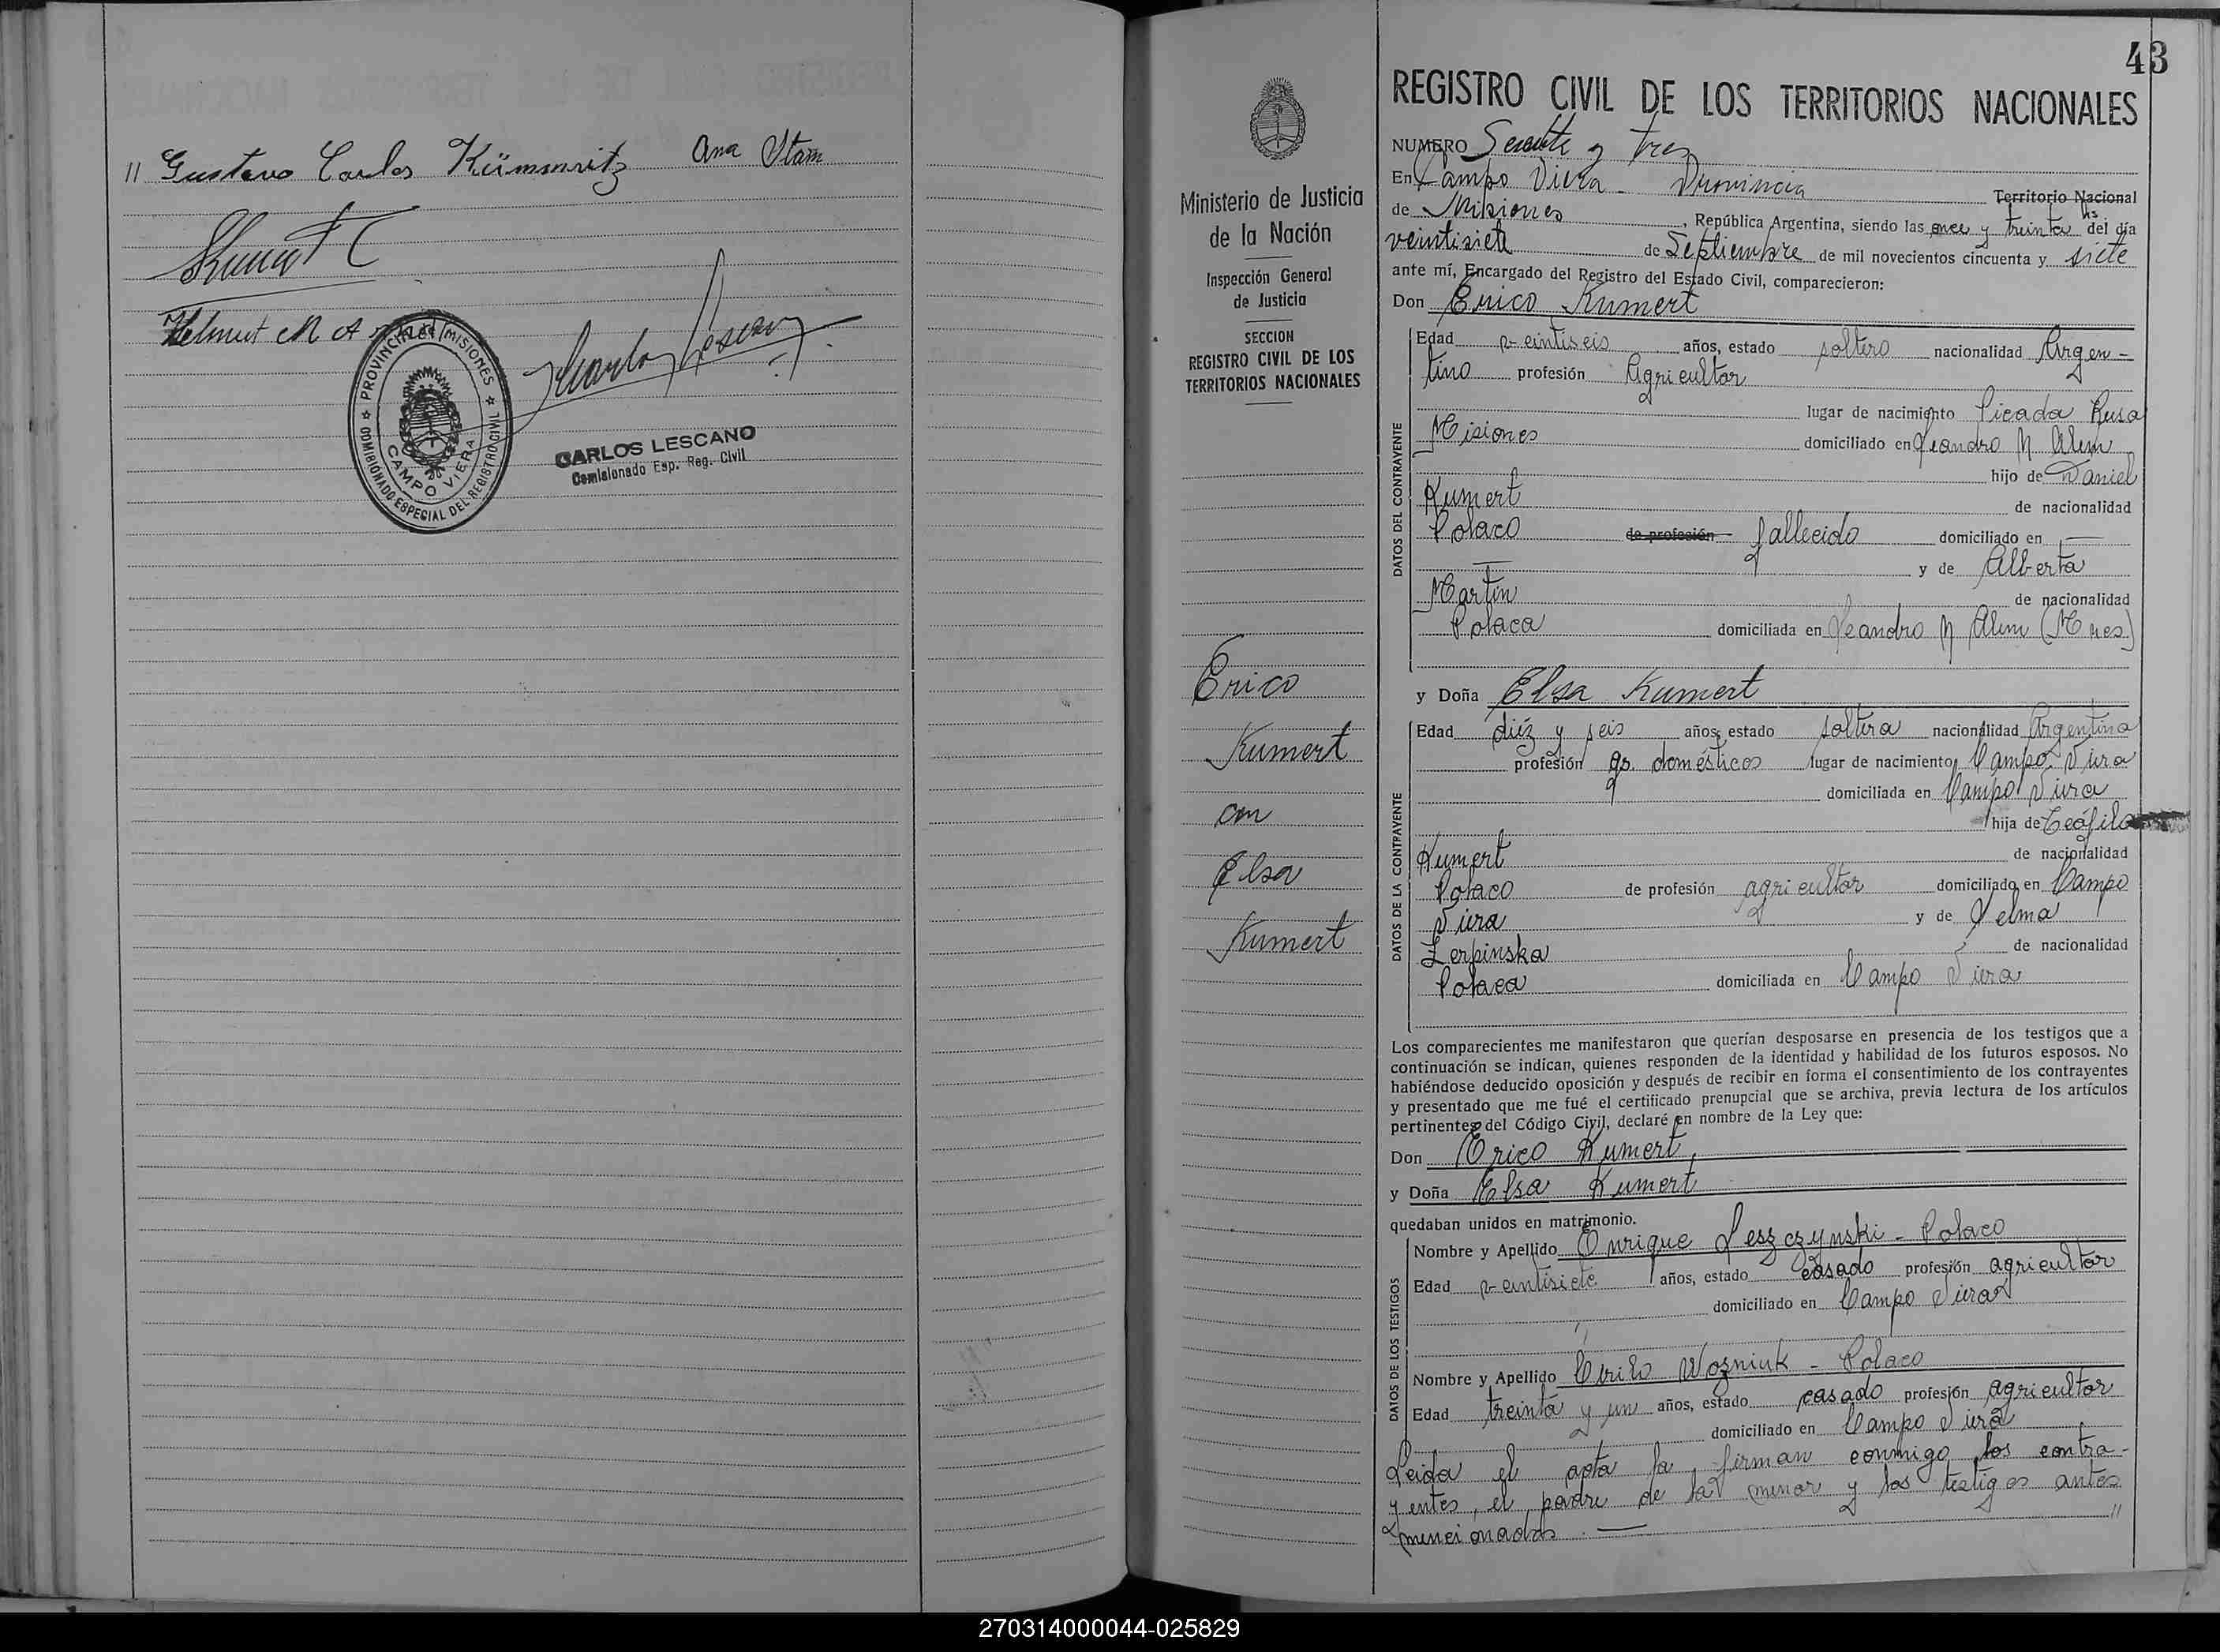 // Gustavo Carlos Kümmritz Ana Stam
Helmut
PROVINCIA DE MISIONES
COMISIONADO ESPECIAL DEL REGISTRO CIVIL
CAMPO VIERA
CARLOS LESCANO
Comisionado Esp. Reg. Civil
Ministerio de Justicia
de la Nación
Inspección General
de Justicia
SECCION
REGISTRO CIVIL DE LOS
TERRITORIOS NACIONALES
Erico
Kumert
con
Elsa
Kumert
43
REGISTRO CIVIL DE LOS TERRITORIOS NACIONALES
NUMERO y tres
En Campo Viera - Provincia Territorio Nacional
de Misiones, República Argentina, siendo las once y treinta hs del día
veintisiete de Septiembre de mil novecientos cincuenta y siete
ante mí, Encargado del Registro del Estado Civil, comparecieron:
Don Erico Kumert
DATOS DEL CONTRAYENTE
Edad veintiseis años, estado soltero nacionalidad Argen-
tino profesión Agricultor
lugar de nacimiento Picada Rusa
Misiones domiciliado en Leandro N Alem
hijo de Daniel
Kumert de nacionalidad
Polaco de profesión fallecido domiciliado en —
— y de Alberta
Martin de nacionalidad
Polaca domiciliada en Leandro N Alem (Mnes)
y Doña Elsa Kumert
DATOS DE LA CONTRAYENTE
Edad diéz y seis años, estado soltera nacionalidad Argentina
profesión qs. domésticos lugar de nacimiento Campo Viera
domiciliada en Campo Viera
hija de Teofilo
Kumert de nacionalidad
Polaco de profesión agricultor domiciliado en Campo
Viera y de Selma
Zerpinska de nacionalidad
Polaca domiciliada en Campo Viera
Los comparecientes me manifestaron que querían desposarse en presencia de los testigos que a
continuación se indican, quienes responden de la identidad y habilidad de los futuros esposos. No
habiéndose deducido oposición y después de recibir en forma el consentimiento de los contrayentes
y presentado que me fué el certificado prenupcial que se archiva, previa lectura de los artículos
pertinentes del Código Civil, declaré en nombre de la Ley que:
Don Erico Kumert
y Doña Elsa Kumert
quedaban unidos en matrimonio.
DATOS DE LOS TESTIGOS
Nombre y Apellido Enrique Leszczynski - Polaco
Edad veintisiete años, estado casado profesión agricultor
domiciliado en Campo Viera
Nombre y Apellido Cirilo Wozniuk - Polaco
Edad treinta y un años, estado casado profesión agricultor
domiciliado en Campo Viera
Leida el acta la firman conmigo los contra-
yentes, el padre de la menor y los testigos antes
mencionados. — //
270314000044-025829